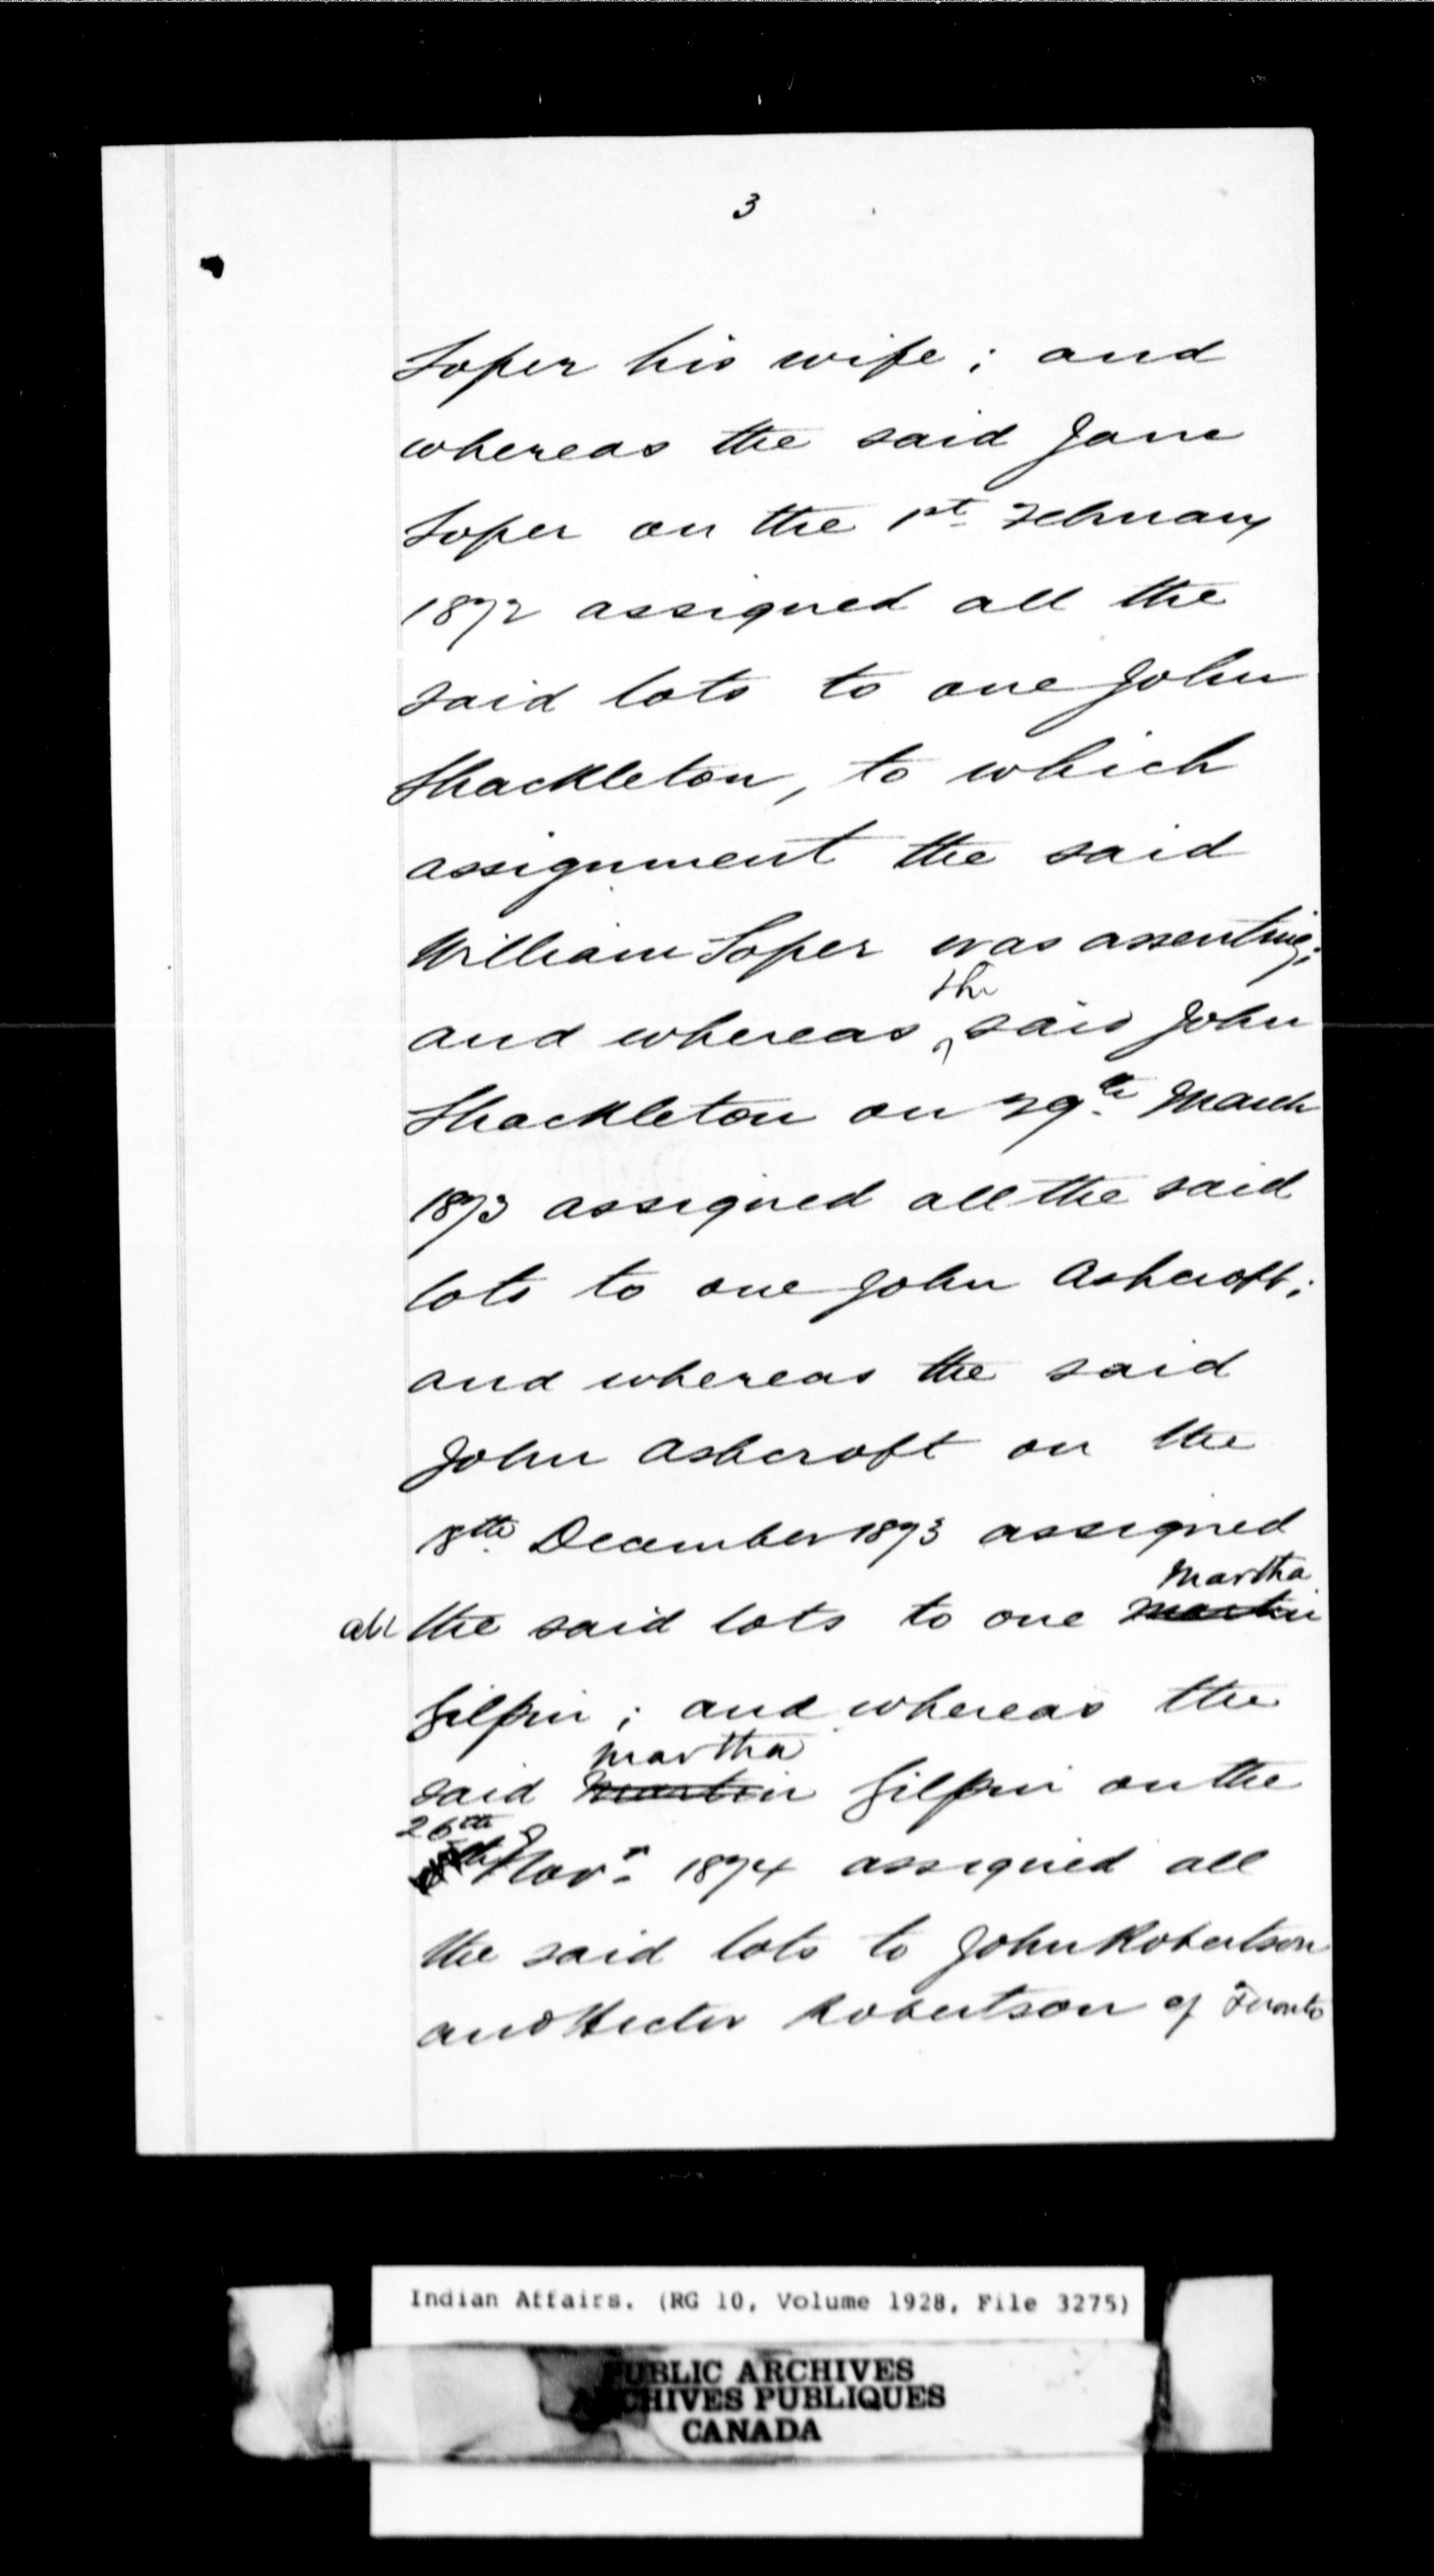 3
Soper his wife; and
whereas the said Jane
Soper on the 1st February
1872 assigned all the
said lots to one John
Shackleton, to which
assignment the said
William Soper was assenting;
the
and whereas said John
Shackleton on 29th March
1873 assigned all the said
lots to one John Ashcroft;
and whereas the said
John Ashcroft on the
18th December 1873 assigned
Martha
all the said lots to one Martin
Gilpin; and whereas the
Martha
said Martin Gilpin on the
26th
Novr 1874 assigned all
the said lots to John Robertson
and Hector Robertson of Toronto
Indian Affairs. (RG 10, Volume 1928, File 3275)
PUBLIC ARCHIVES
ARCHIVES PUBLIQUES
CANADA